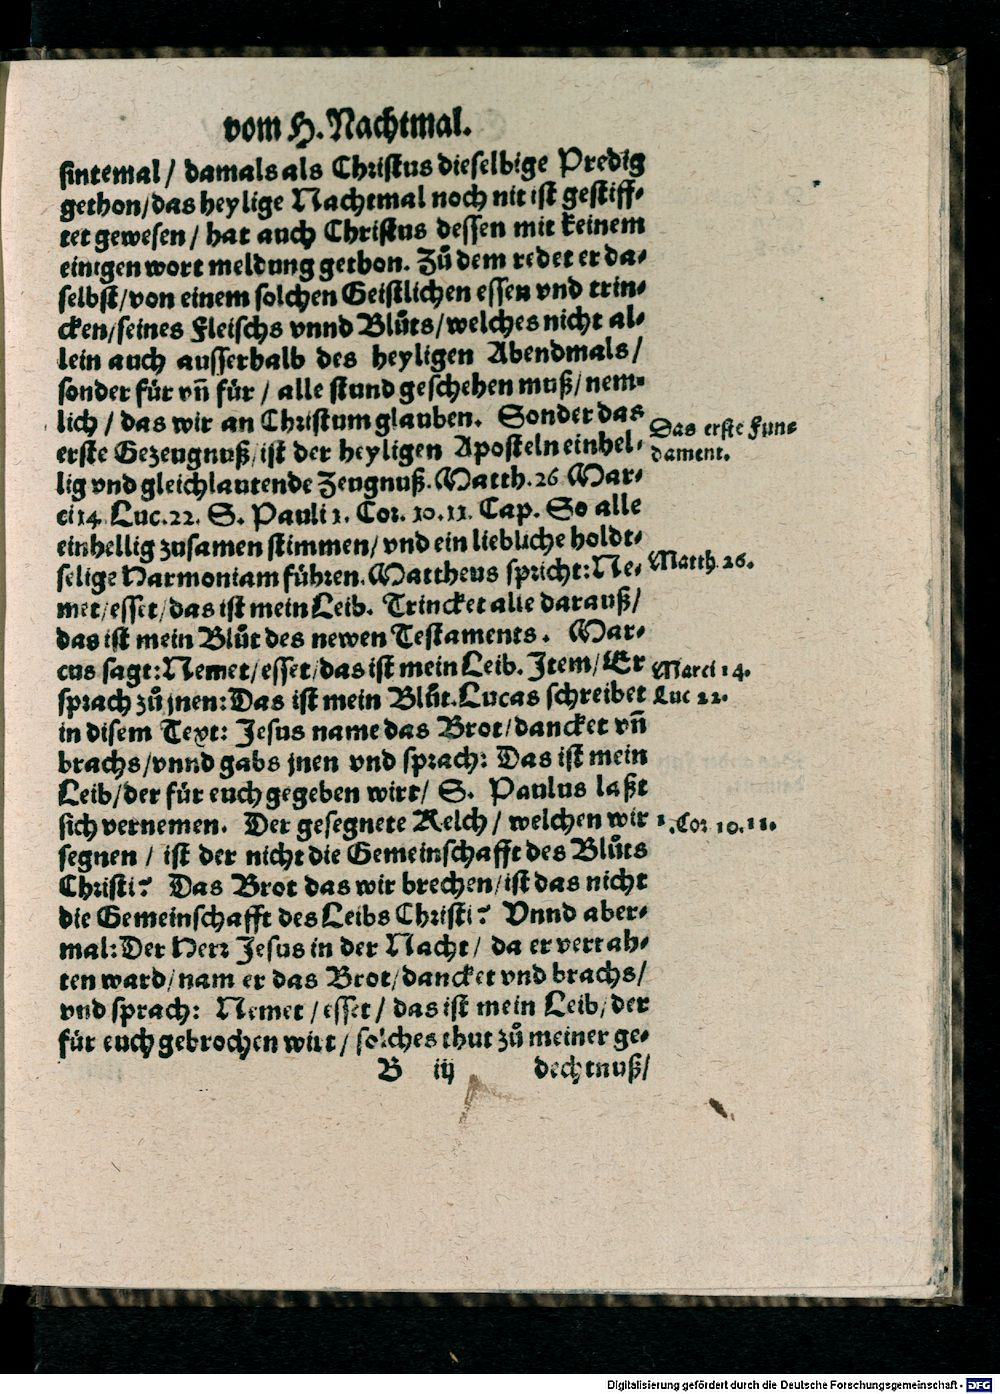 vom H. Nachtmal.
sintemal / damals als Christus dieselbige Predig
gethon / das heylige Nachtmal noch nit ist gestiff⸗
tet gewesen / hat auch Christus dessen mit keinem
einigen wort meldung gethon. Zů dem redet er da⸗
selbst / von einem solchen Geistlichen essen vnd trin⸗
cken / seines Fleischs vnnd Blůts / welches nicht al⸗
lein auch ausserhalb des heyligen Abendmals /
sonder für vñ für / alle stund geschehen muß / nem⸗
lich / das wir an Christum glauben. Sonder das
Das erste Fun⸗
dament.
erste Gezeugnuß / ist der heyligen Aposteln einhel⸗
lig vnd gleichlautende Zeugnuß. Matth. 26 Mar⸗
ci 14. Luc. 22. S. Pauli 1. Cor. 10. 11. Cap. So alle
einhellig zusamen stimmen / vnd ein liebliche holdt⸗
selige Harmoniam führen. Mattheus spricht: Ne⸗
Matth. 26.
met / esset / das ist mein Leib. Trincket alle darauß /
das ist mein Blůt des newen Testaments. Mar⸗
cus sagt: Nemet / esset / das ist mein Leib. Item / Er
Marci 14.
sprach zů jnen: Das ist mein Blůt. Lucas schreibet
Luc 22.
in disem Text: Jesus name das Brot / dancket vñ
brachs / vnnd gabs jnen vnd sprach: Das ist mein
Leib / der für euch gegeben wirt / S. Paulus laßt
sich vernemen. Der gesegnete Kelch / welchen wir
1. Cor 10. 11.
segnen / ist der nicht die Gemeinschafft des Blůts
Christi? Das Brot das wir brechen / ist das nicht
die Gemeinschafft des Leibs Christi? Vnnd aber⸗
mal: Der Herr Jesus in der Nacht / da er verrah⸗
ten ward / nam er das Brot / dancket vnd brachs /
vnd sprach: Nemet / esset / das ist mein Leib / der
für euch gebrochen wirt / solches thut zů meiner ge⸗
B iij dechtnuß /
Digitalisierung gefördert durch die Deutsche Forschungsgemeinschaft - DFG